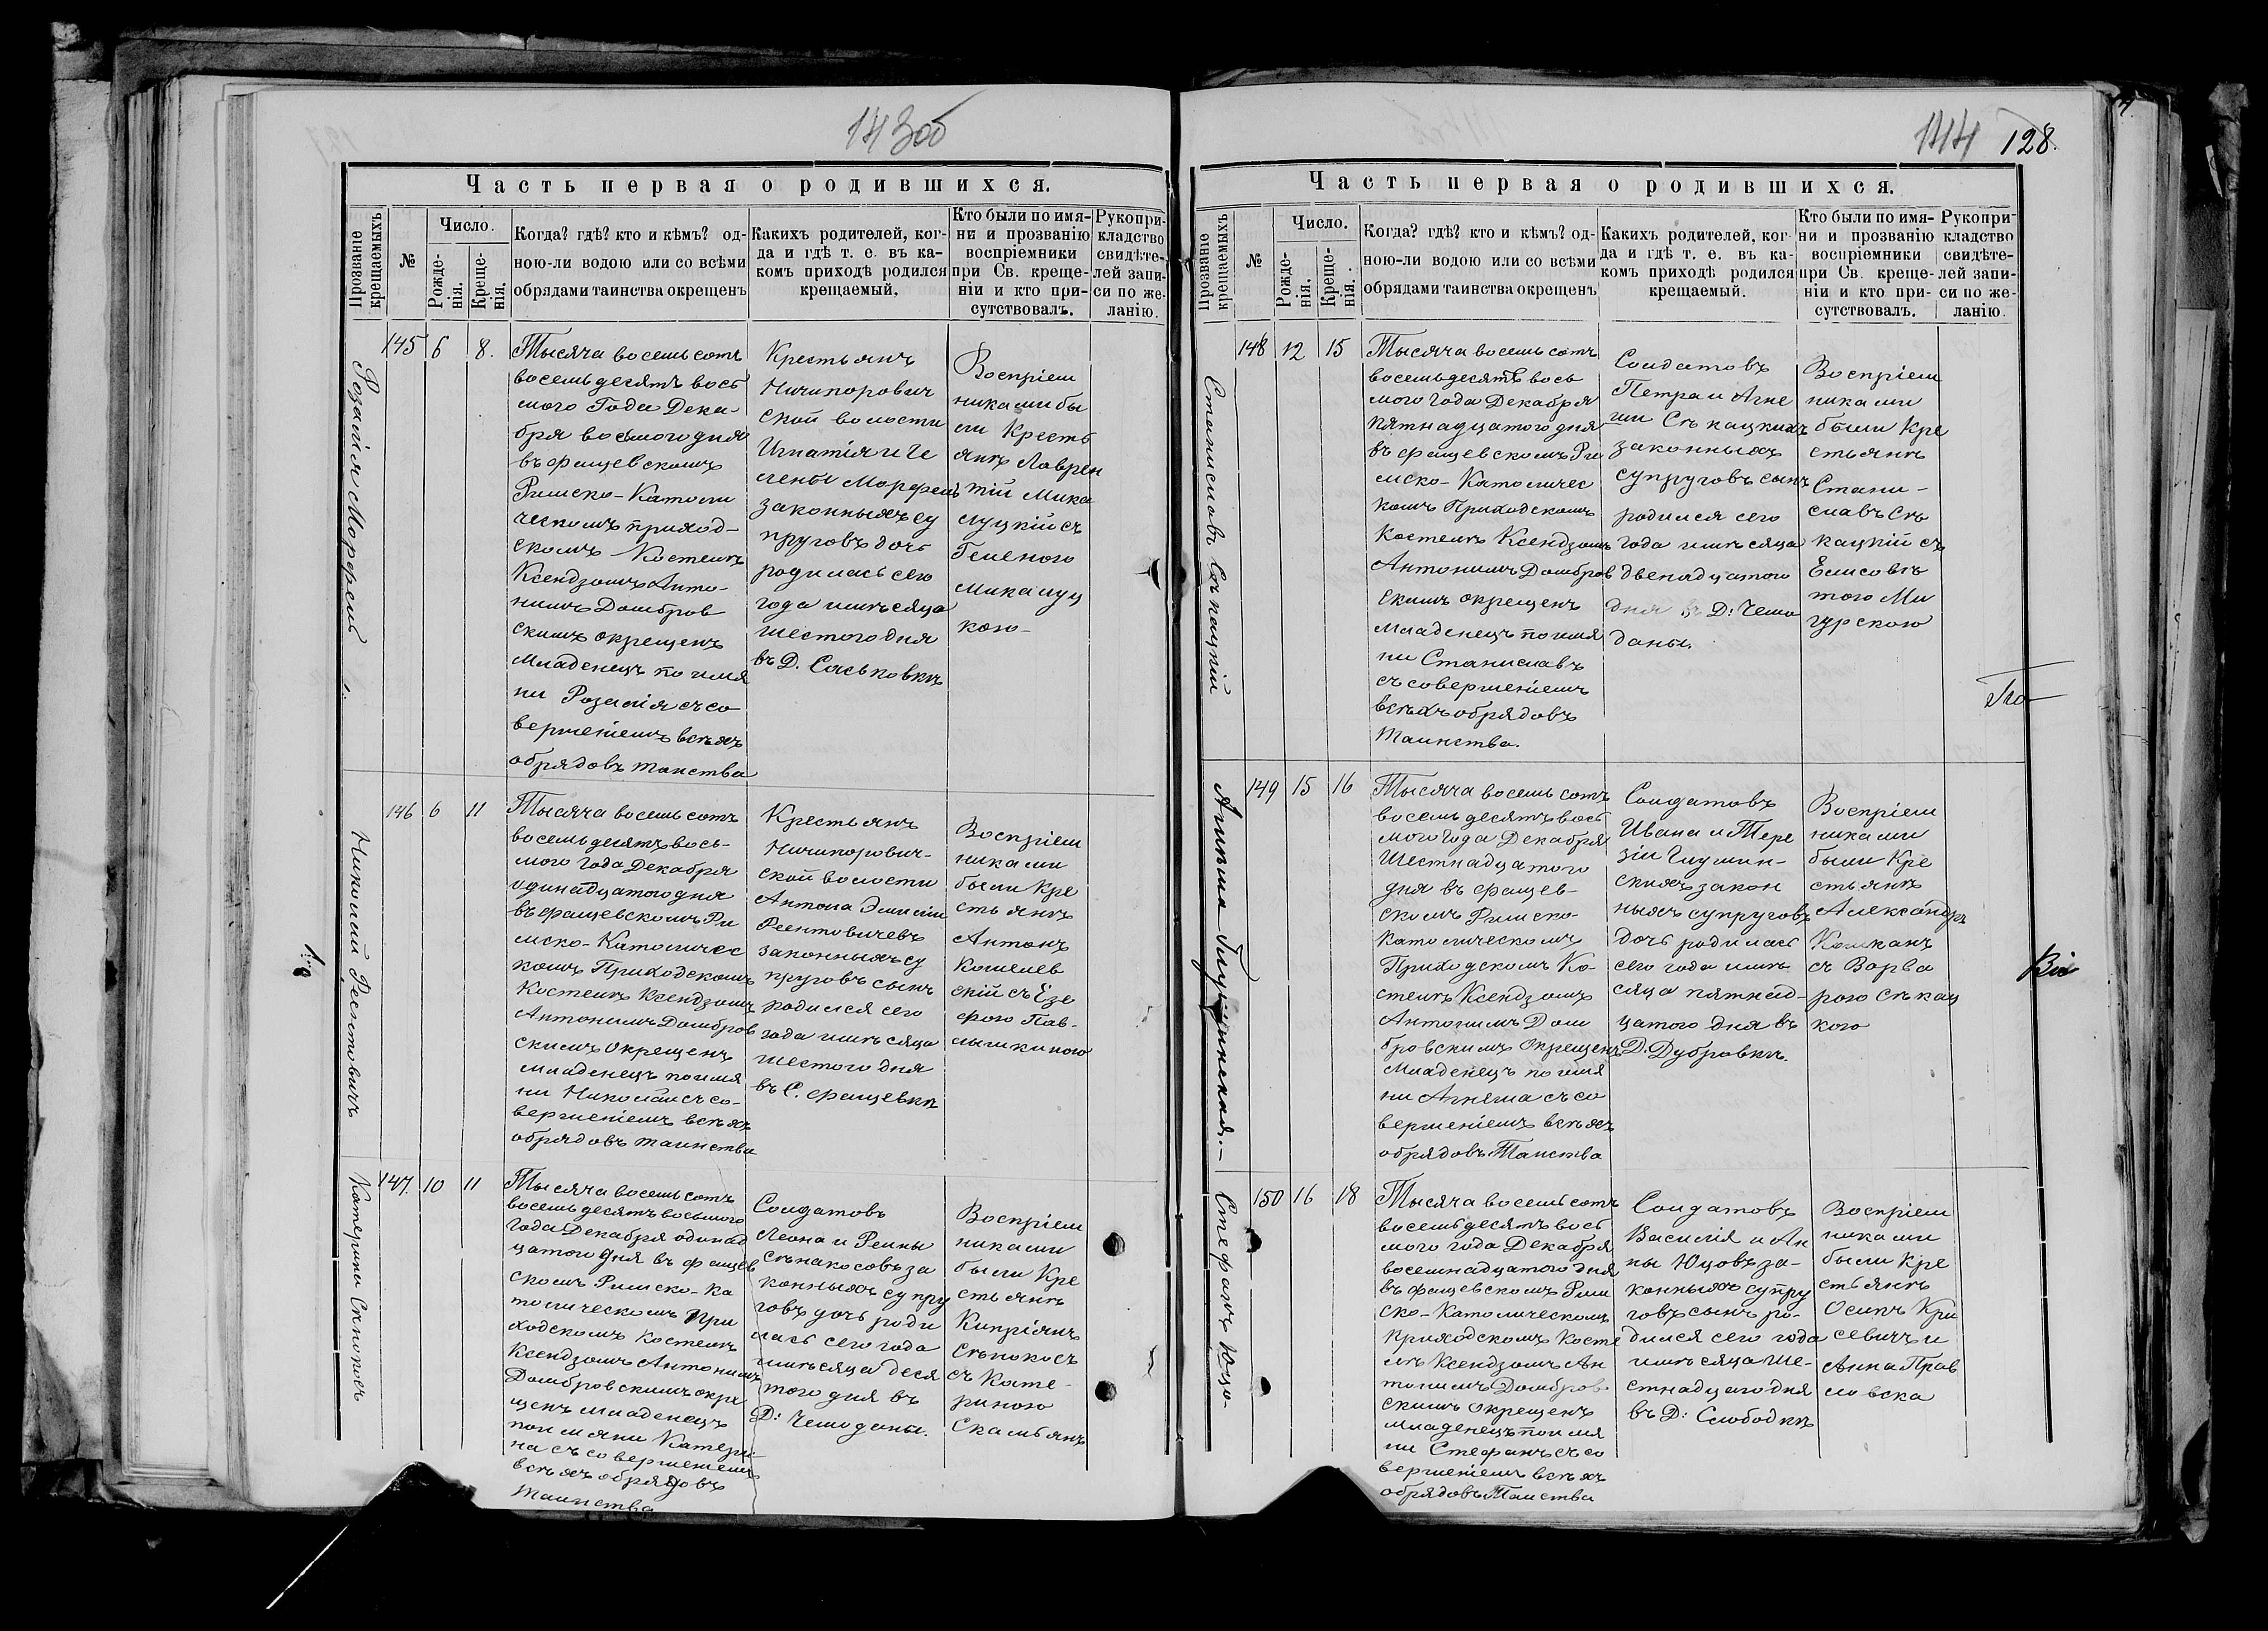 143об
Часть первая о родившихся.
Прозваніе крещаемыхъ
№
Число.
Рожденія.
Крещенія.
Когда? гдѣ? кто и кѣмъ? од-
ною-ли водою или со всѣми
обрядами таинства окрещенъ
Какихъ родителей, ког-
да и гдѣ т. е. въ ка-
комъ приходѣ родился
крещаемый.
Кто были по имя-
ни и прозванію
воспріемники
при Св. креще-
ніи и кто при-
сутствовалъ.
Рукопри-
кладство
свидѣте-
лей запи-
си по же-
ланію.
Розалія Морфель
145 6 8.
Тысяча восемьсотъ
восемьдесятъ вось
мого Года Дека
бря восьмого дня
въ Фащевскомъ
Римско-Католи
ческомъ приход-
скомъ Костелѣ
Ксендзомъ Анто-
нимъ Домбров
скимъ окрещенъ
Младенецъ по имя
ни Розалія съ со
вершеніемъ всѣхъ
обрядовъ таиства
Крестьянъ
Ничипорович
ской волости
Игнатія и Ге
лены Морфель
законныхъ су
пруговъ дочь
родилась сего
года и мѣсяца
шестого дня
въ Д. Саськовкѣ
Воспріем
никами бы
ли Кресть
янѣ Лаврен
тій Мика
луцкій съ
Геленою
Микалуц
кою-
Николай Рентовичъ
146 6 11
Тысяча восемьсотъ
восемьдесятъ вось-
мого года Декабря
одинадцатого дня
въ Фащевскомъ Ри
мско-Католичес
комъ Приходскомъ
Костелѣ Ксендзомъ
Антонимъ Домбров
скимъ окрещенъ
младенецъ по имя
ни Николай съ со-
вершеніемъ всѣхъ
обрядовъ таинства
Крестьянъ
Ничипорович-
ской волости
Антона Эмиліи
Рентовичевъ
законныхъ су
пруговъ сынъ
родился сего
года и мѣсяца
шестого дня
въ С. Фащевкѣ
Воспріем
никами
были Кре
стьянѣ
Антонъ
Кошелев
скій съ Езе
фою Пав-
Катерина Сѣнокосъ
147. 10 11
Тысяча восемьсотъ
восемьдесятъ восьмого
года Декабря одинад
цатого дня въ Фащев
скомъ Римско-Ка
толическомъ При
ходскомъ Костелѣ
Ксендзомъ Антонимъ
Домбровскимъ окре
щенъ младенецъ
по имяни Катери
на съ совершеніемъ
всѣхъ обрядовъ
Таинства
Солдатовъ
Леона и Регины
Сѣнокосовъ за
конныхъ супру
говъ дочь роди
лась сего года
и мѣсяца деся
того дня въ
Д: Чемоданы.
Воспріем
никами
были Кре
стьянѣ
Кипріянъ
Сѣнокосъ
съ Кате-
риною
144 128.
Часть первая о родившихся.
Прозваніе крещаемыхъ
№
Число.
Рожденія.
Крещенія.
Когда? гдѣ? кто и кѣмъ? од-
ною-ли водою или со всѣми
обрядами таинства окрещенъ
Какихъ родителей, ког-
да и гдѣ т. е. въ ка-
комъ приходѣ родился
крещаемый.
Кто были по имя-
ни и прозванію
воспріемники
при Св. креще-
ніи и кто при-
сутствовалъ.
Рукопри-
кладство
свидѣте-
лей запи-
си по же-
ланію.
Станиславъ Сѣкацкій
148 12 15
Тысяча восемьсотъ
восемьдесятъ вось
мого года Декабря
пятнадцатого дня
въ Фащевскомъ Ри
мско-Католичес
комъ Приходскомъ
Костелѣ Ксендзомъ
Антонимъ Домбров
скимъ окрещенъ
младенецъ по имя
ни Станиславъ
съ совершеніемъ
всѣхъ обрядовъ
Таинства.
Солдатовъ
Петра и Агне
ши Сѣкацкихъ
законныхъ
супруговъ сынъ
родился сего
года и мѣсяца
двенадцатого
дня въ Д: Чемо
даны.
Воспріем
никами
были Кре
стьянѣ
Стани-
славъ Сѣ
кацкій съ
Елисовѣ
тою Ми
гурскою
Агнѣша Глушинская.-
149 15 16
Тысяча восемьсотъ
восемьдесятъ вось
мого года Декабря
Шестнадцатого
дня въ Фащев-
скомъ Римско-
католическомъ
Приходскомъ Ко-
стелѣ Ксендзомъ
Антонимъ Дом
бровскимъ Окрещенъ
Младенецъ по имя
ни Агнеша съ со
вершеніемъ всѣхъ
обрядовъ Таиства
Солдатовъ
Ивана и Тере
зіи Глушин-
скихъ закон
ныхъ супруговъ
дочь родилась
сего года и мѣ
сяца пятнад-
цатого дня въ
Д. Дубровкѣ.
Воспріем
никами
были Кре
стьянѣ
Александръ
съ Варва
рою Сѣкац
кого
Стефанъ Юцо-
150 16 18
Тысяча восемьсотъ
восемьдесятъ вось
мого года Декабря
восемнадцатого дня
въ Фащевскомъ Рим
ско-Католическомъ
приходскомъ Косте
лѣ Ксендзомъ Ан
тонимъ Домбров-
скимъ окрещенъ
младенецъ по имя
ни Стефанъ съ со
вершеніемъ всѣхъ
обрядовъ Таиства
Солдатовъ
Василія и Ан
ны Юцовъ за-
конныхъ супру
говъ сынъ ро-
дился сего года
и мѣсяца ше-
стнадцаго дня
въ Д: Слободкѣ
Воспріем
никами
были Кре
стьянѣ
Осипъ Кри
севичъ и
Анна Прав
ловска